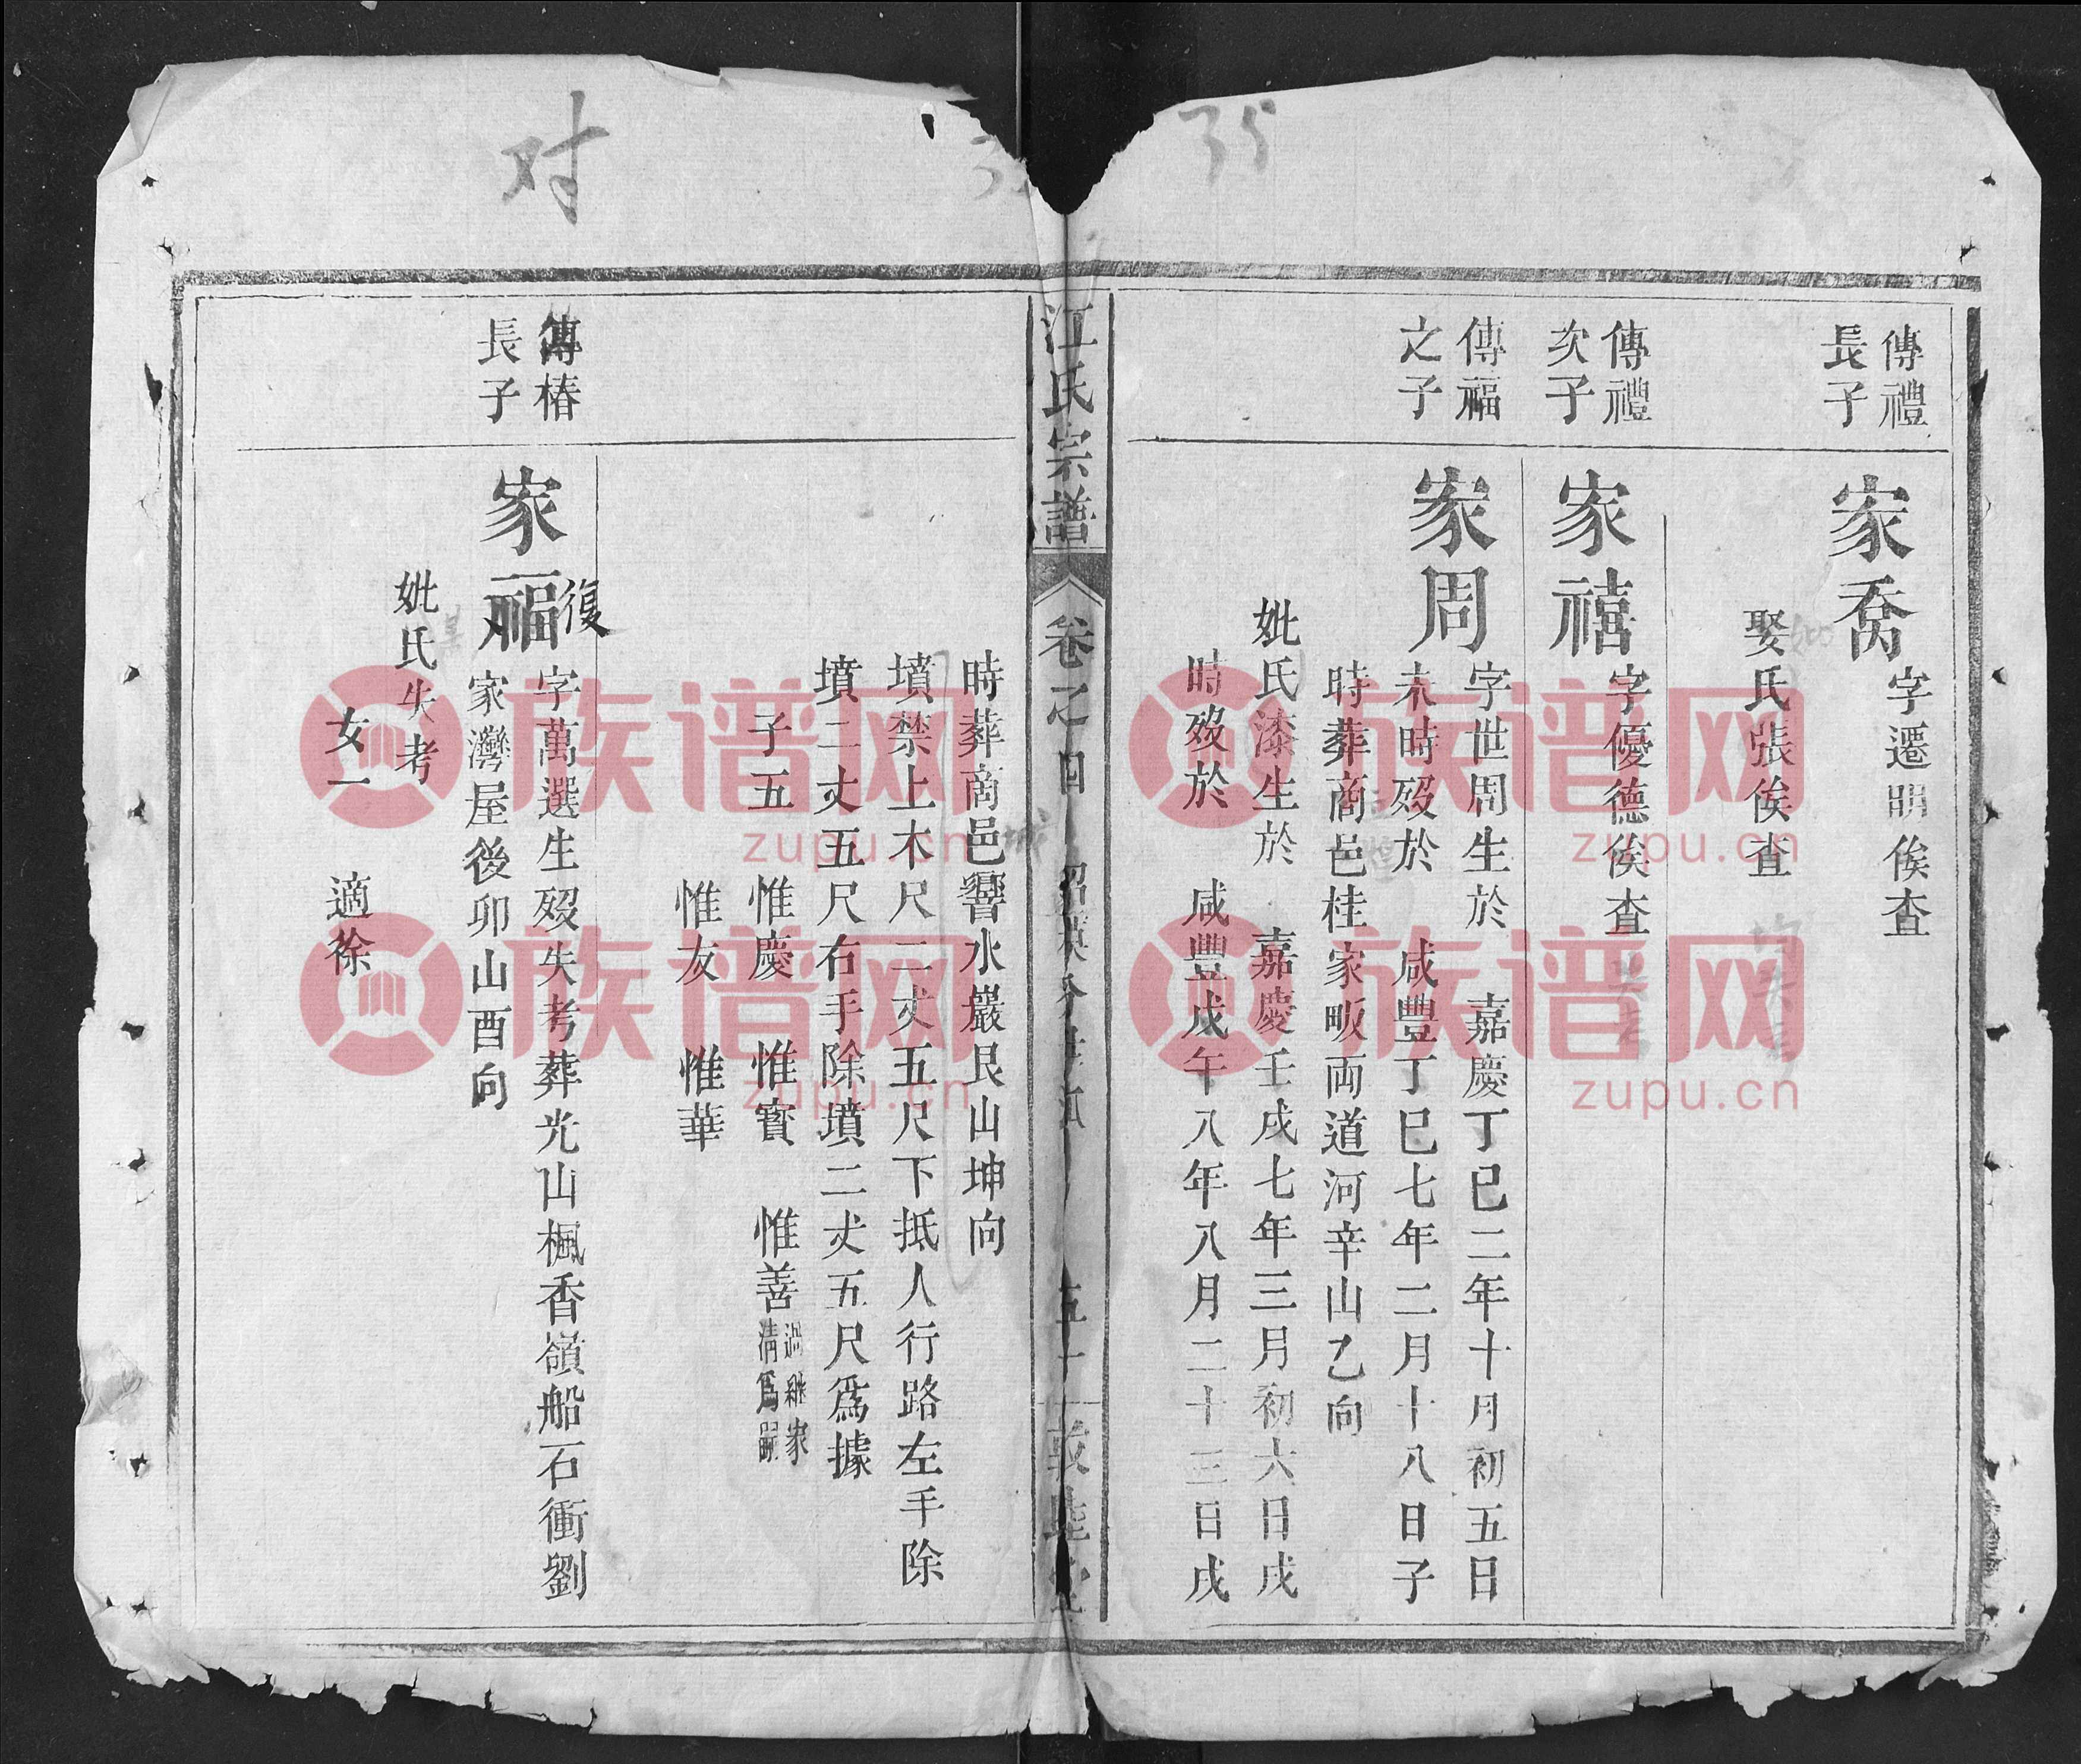 35
傳禮
長子
家喬
字遷明俟查
娶氏張俟查
傳禮
次子
家禧
字優德俟查
傳福
之子
家周
字世周生於 嘉慶丁巳二年十月初五日
未時歿於 咸豐丁巳七年二月十八日子
時葬商邑桂家畈両道河辛山乙向
妣氏漆生於 嘉慶壬戌七年三月初六日戌
時歿於 咸豐戊午八年八月二十三日戌
江氏宗譜
卷之四
敦睦堂
对
時葬商邑響水巖艮山坤向
城
墳禁上木尺二丈五尺下抵人行路左手除
墳二丈五尺右手除墳二丈五尺為據
子五 惟慶 惟寳 惟善
過繼家
清爲嗣
惟友 惟華
傳椿
長子
家福
復
字萬選生歿失考葬光山楓香嶺船石衝劉
家灣屋後卯山酉向
妣氏失考
女一 適徐
族谱网
zupu.cn
族谱网
zupu.cn
族谱网
zupu.cn
族谱网
zupu.cn